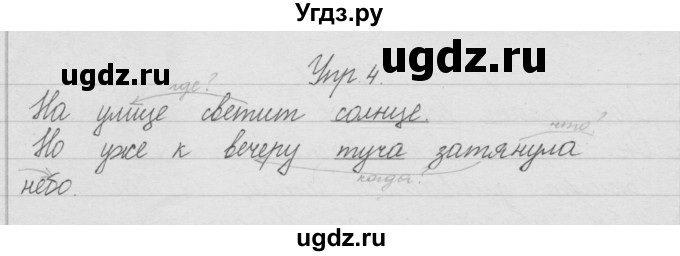 Угдз.ру
ugdz.ru ugdz.ru
Упр. 4.
где?
На улице светит солнце.
что?
Но уже к вечеру туча затянула
когда?
небо.
ugdz.ru
ugdz.ru